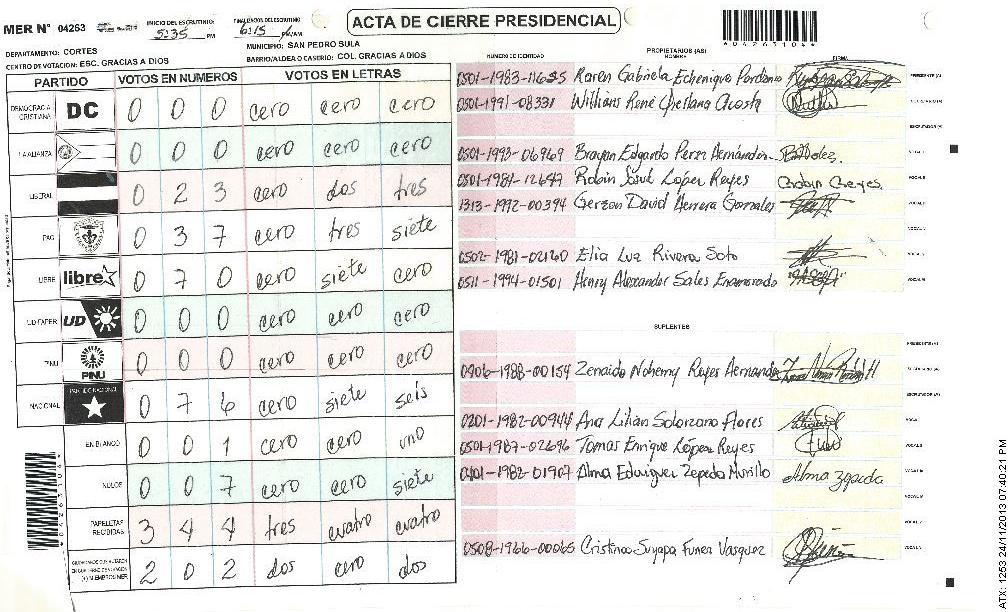 ACTA DE CIERRE PRESIDENCIAL
MER N° 04263
INICIO DEL ESCRUTINIO 5:35 PM
FINALIZACION DEL ESCRUTINIO 6:15 PM/AM
*04263104*
DEPARTAMENTO: CORTES
MUNICIPIO: SAN PEDRO SULA
CENTRO DE VOTACION: ESC. GRACIAS A DIOS
BARRIO/ALDEA O CASERIO: COL. GRACIAS A DIOS
PARTIDO VOTOS EN NUMEROS VOTOS EN LETRAS
DEMOCRACIA CRISTIANA DC 0 0 0 cero cero cero
LA ALIANZA 0 0 0 cero cero cero
LIBERAL 0 2 3 cero dos tres
PAC 0 3 7 cero tres siete
LIBRE libre 0 7 0 cero siete cero
UD FAPER UD 0 0 0 cero cero cero
PINU PINU 0 0 0 cero cero cero
NACIONAL PARTIDO NACIONAL 0 7 6 cero siete seis
EN BLANCO 0 0 1 cero cero uno
NULOS 0 0 7 cero cero siete
PAPELETAS RECIBIDAS 3 4 4 tres cuatro cuatro
2 0 2 dos cero dos
*04263104*
PROPIETARIOS (AS)
NUMERO DE IDENTIDAD NOMBRE FIRMA
0501-1983-11635 Karen Gabriela Echenique Perdomo PRESIDENTE (A)
0501-1991-08331 Willians René Orellana Acosta SECRETARIO (A)
ESCRUTADOR (A)
0501-1993-06969 Brayan Edgardo Perez Hernández VOCAL I
0501-1981-12647 Robin Josué López Reyes Robin Reyes. VOCAL II
1313-1992-00394 Gerzon David Herrera Gonzales VOCAL III
0502-1981-02160 Elia Luz Rivera Soto
0511-1994-01501 Henry Alexander Sales Enamorado
SUPLENTES
PRESIDENTE (A)
0906-1988-00154 Zenaida Nohemy Reyes Hernandez SECRETARIO (A)
ESCRUTADOR (A)
0201-1982-00944 Ana Lilian Solorzano Flores VOCAL I
0501-1987-02696 Tomas Enrique López Reyes VOCAL II
0401-1982-01907 Alma Eduviguez Zepeda Murillo Alma Zepeda
0508-1966-00065 Cristina Suyapa Funez Vasquez
ATX: 1253 24/11/2013 07:40:21 PM